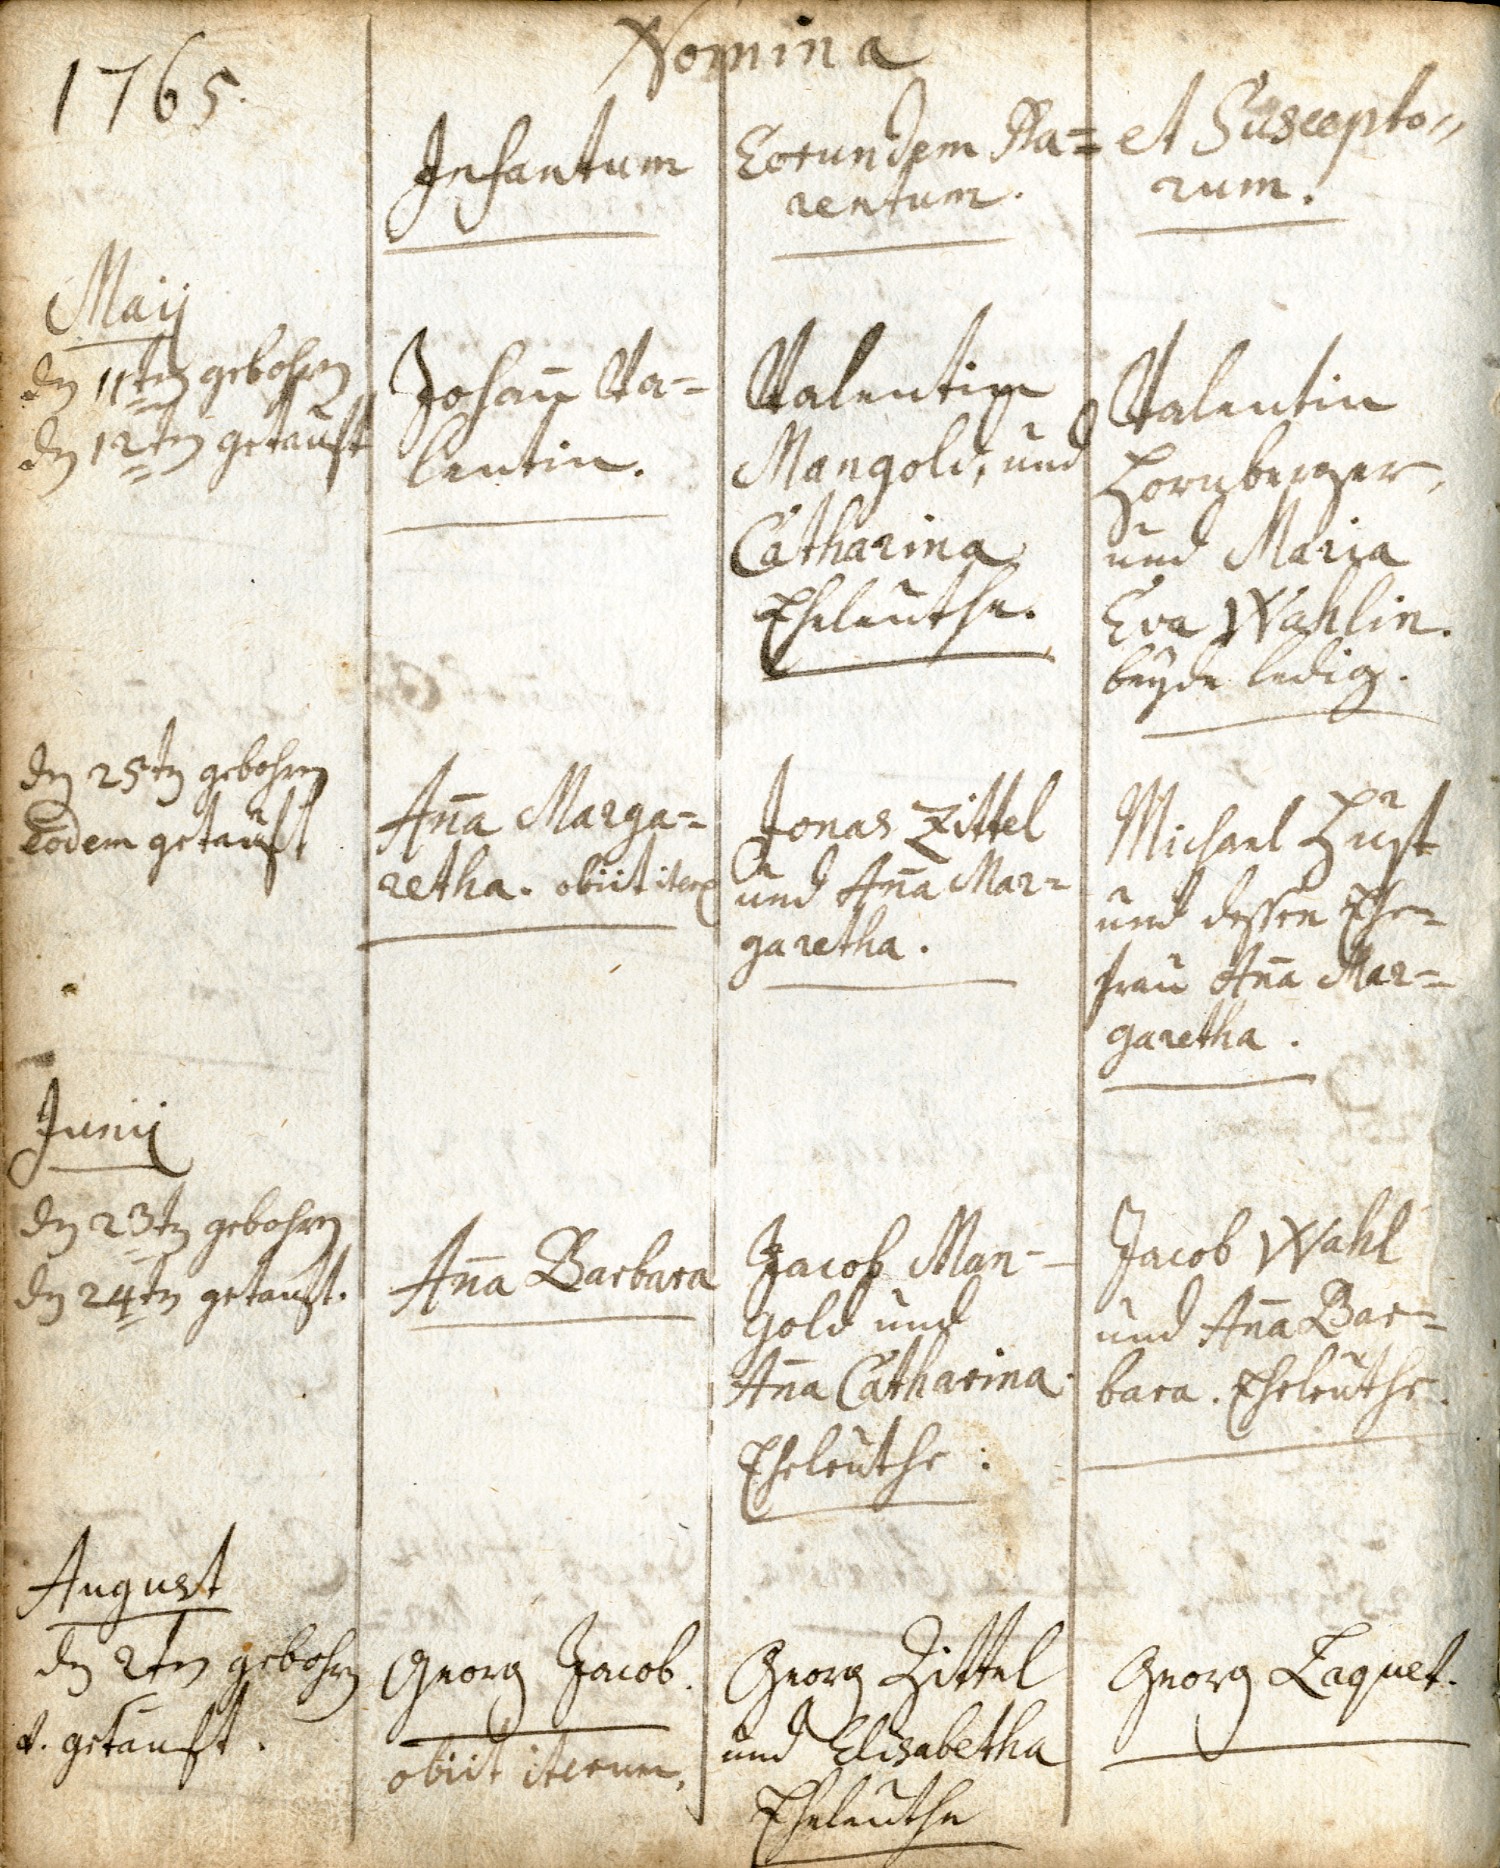 1765.
Nomina
Infantum
Eorundem Pa=
rentum.
et Suscepto=
rum.
Maij
dn 11tn gebohrn
dn 12tn getauft
Johan̄ Va=
lentin.
Valentin
Mangold, und
Catharina
Eheleuthe.
Valentin
Hornberger,
und Maria
Eva Wahlin.
beyde ledig.
dn 25tn gebohrn
eodem getauft
An̄a Marga=
retha. obiit iter
Jonas Zittel
und An̄a Mar=
garetha.
Michael Hust
und dessen Ehe=
frau An̄a Mar=
garetha.
Junij
dn 23tn gebohrn
dn 24tn getauft.
An̄a Barbara
Jacob Man-
gold und
An̄a Catharina.
Eheleuthe:
Jacob Wahl
und An̄a Bar=
bara. Eheleuthe.
August
dn 2tn gebohrn
d. getauft.
Georg Jacob.
obiit iterum.
Georg Zittel
und Elisabetha
Eheleuthe
Georg Laquet.